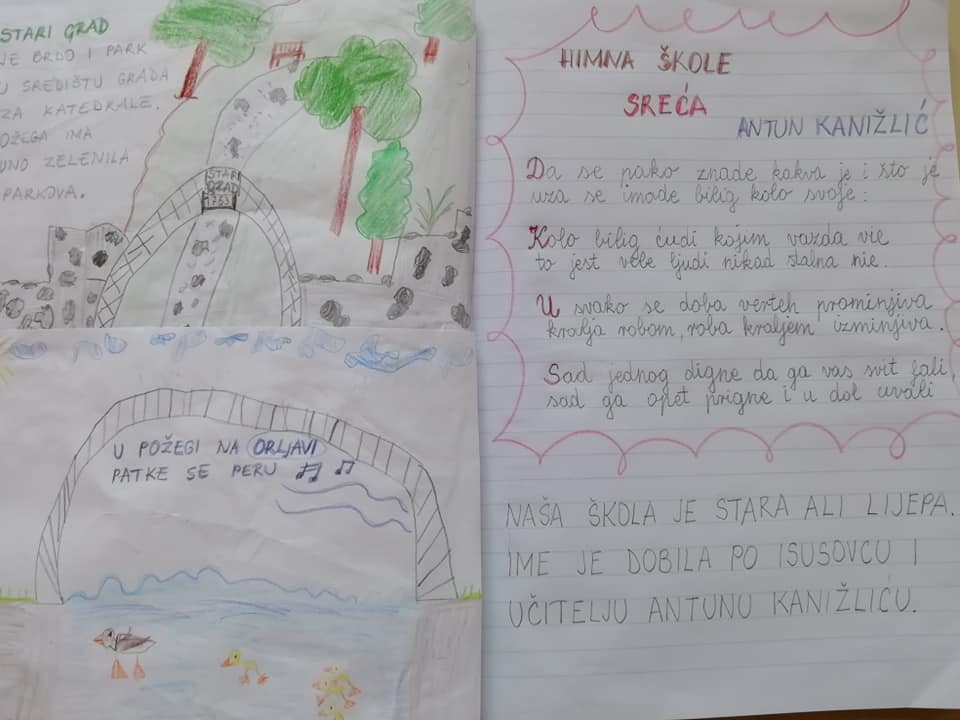 STARI GRAD
JE BRDO I PARK
U SREDIŠTU GRADA
ZA KATEDRALE.
POŽEGA IMA
PUNO ZELENILA
PARKOVA.
STARI
GRAD
1763
U POŽEGI NA ORLJAVI
PATKE SE PERU
HIMNA ŠKOLE
SREĆA
ANTUN KANIŽLIĆ
Da se pako znade kakva je i što je
uza se imade bilig kolo svoje:
Kolo bilig ćudi kojim vazda vie
to jest vele ljudi nikad stalna nie.
U svako se doba verteh prominjiva
kralja robom, roba kraljem izminjiva.
Sad jednog digne da ga vas svit fali,
sad ga opet prigne i u dol uvali
NAŠA ŠKOLA JE STARA ALI LIJEPA.
IME JE DOBILA PO ISUSOVCU I
UČITELJU ANTUNU KANIŽLIĆU.